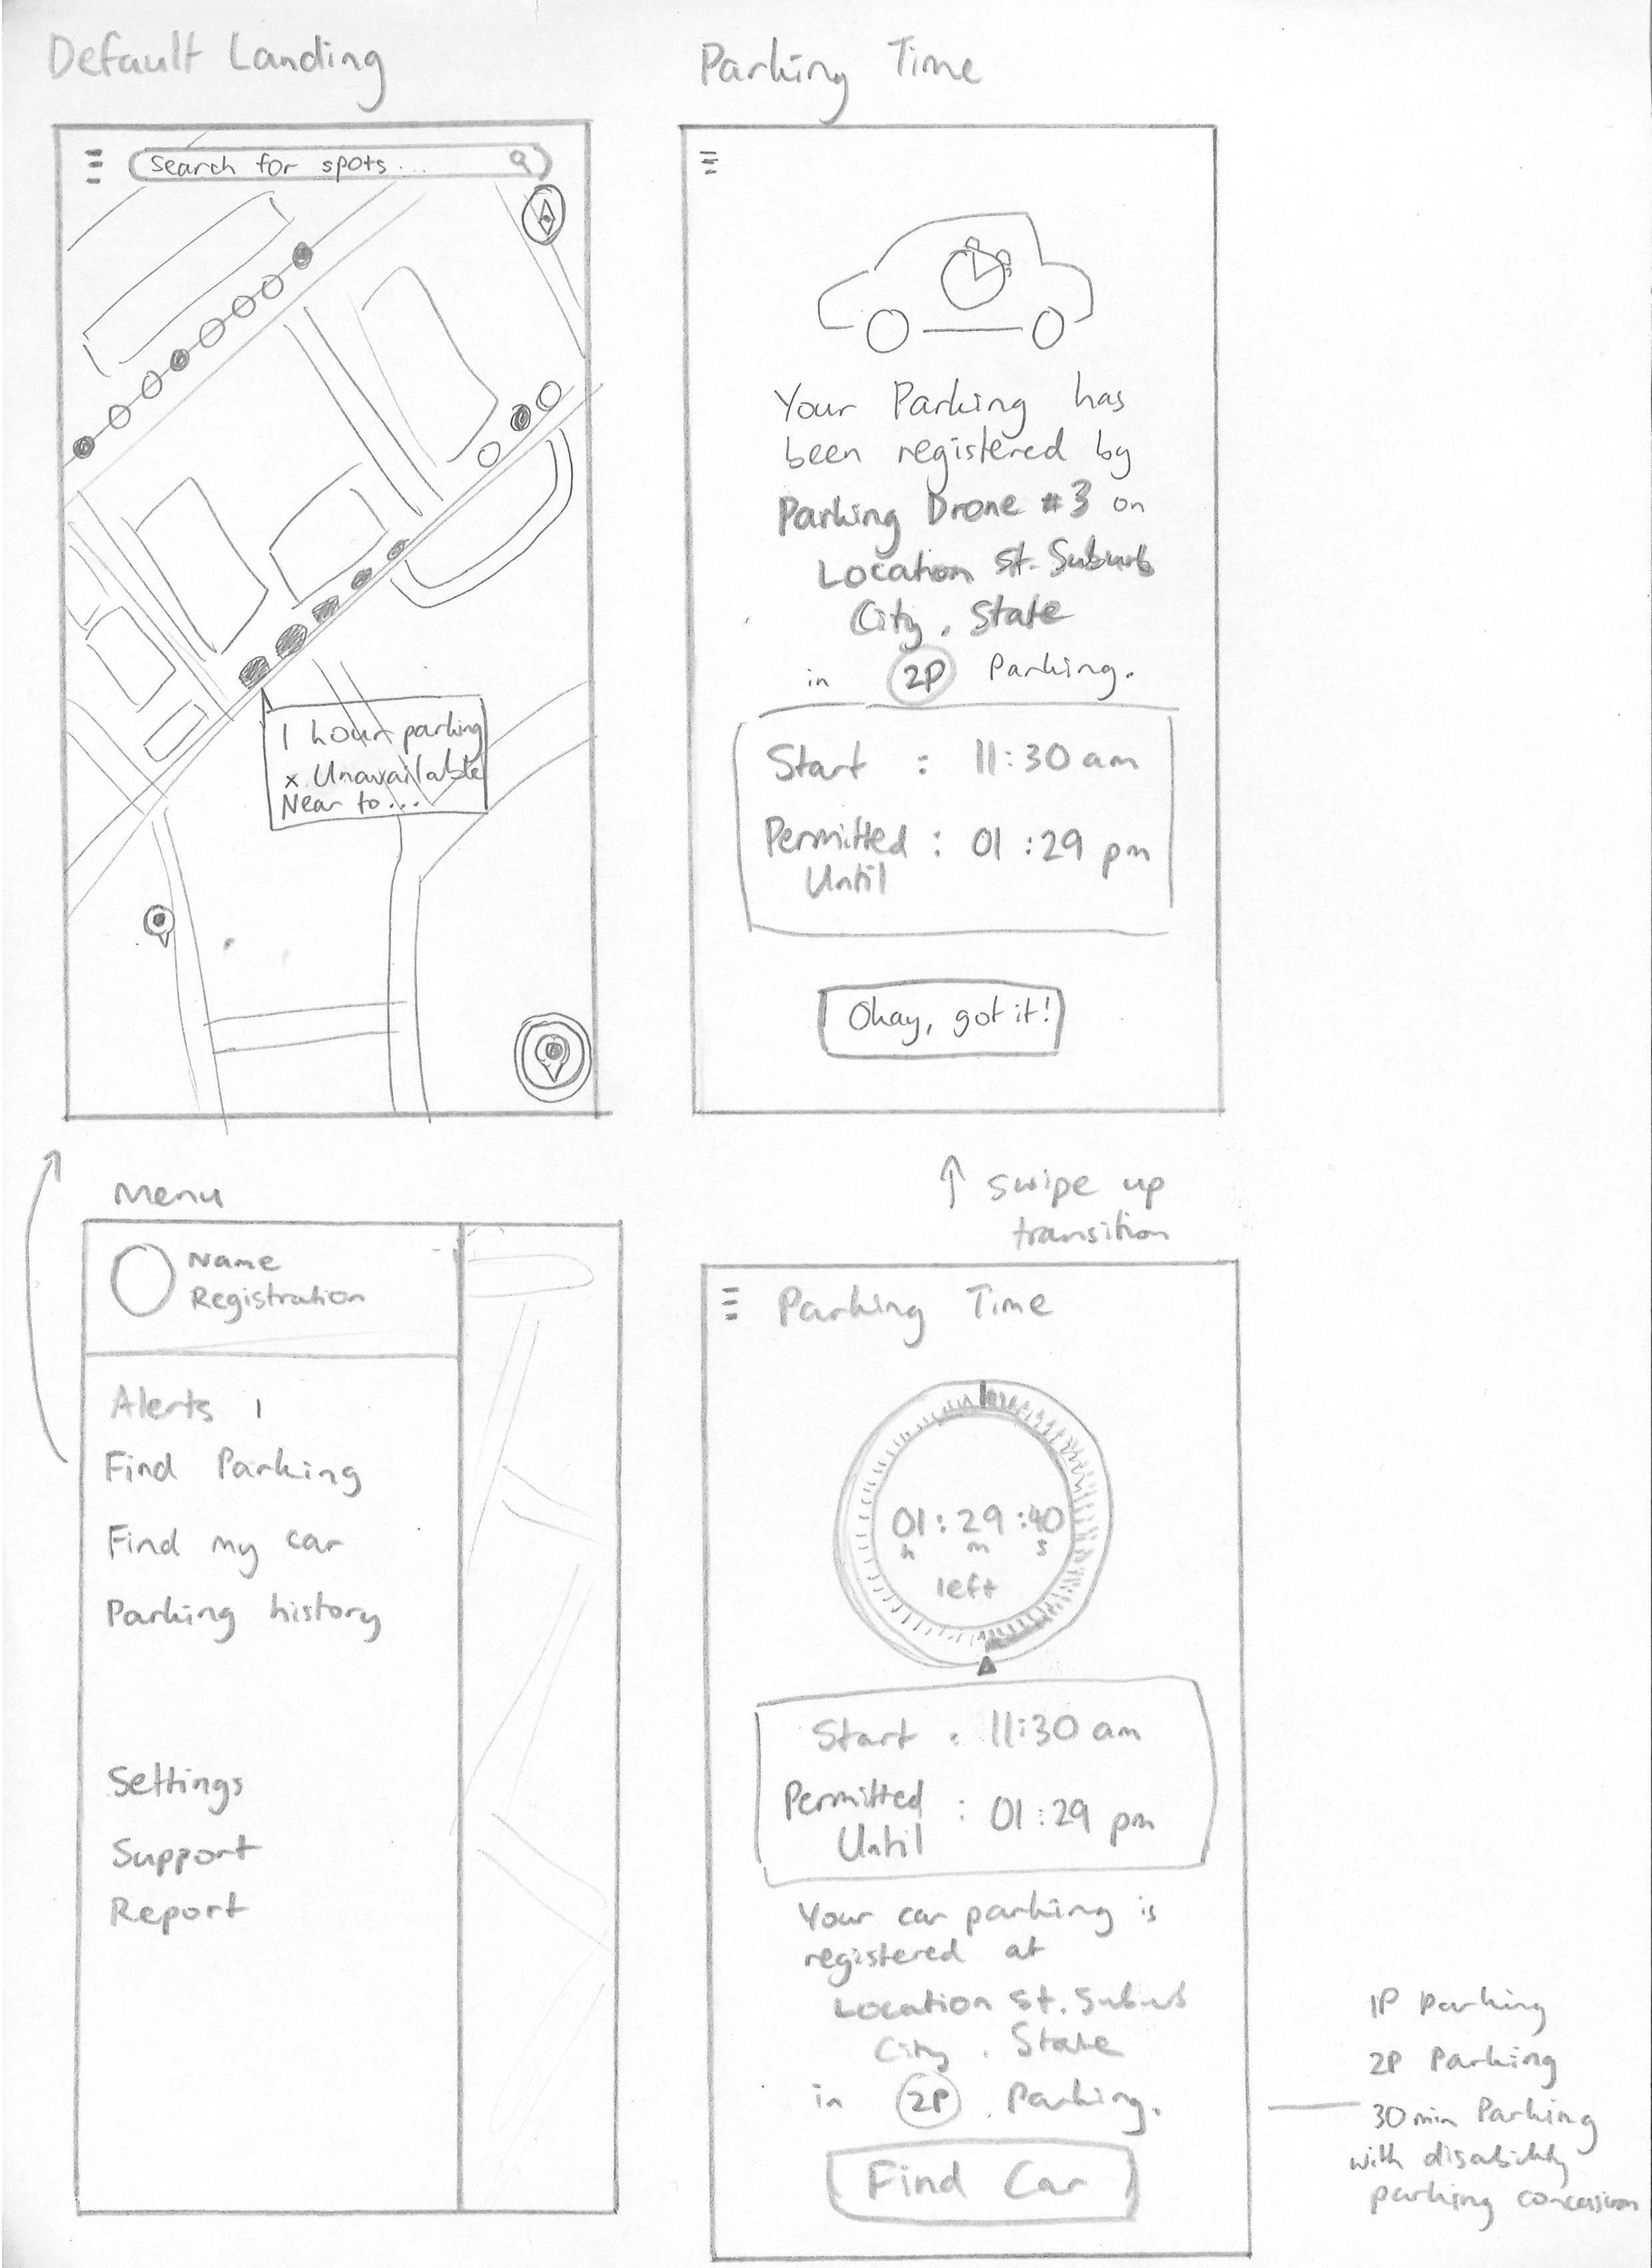 Default Landing
Search for spots...
1 hour parking
x Unavailable
Near to...
Parking Time
Your Parking has
been registered by
Parking Drone #3 on
Location St. Suburb
City, State
in 2P Parking.
Start : 11:30 am
Permitted : 01:29 pm
Until
Okay, got it!
Menu
Name
Registration
Alerts 1
Find Parking
Find my car
Parking history
Settings
Support
Report
↑ swipe up
transition
Parking Time
01:29:40
h m s
left
Start : 11:30 am
Permitted : 01:29 pm
Until
Your car parking is
registered at
Location St. Suburb
City, State
in 2P Parking.
Find Car
1P Parking
2P Parking
30min Parking
with disability
parking concession